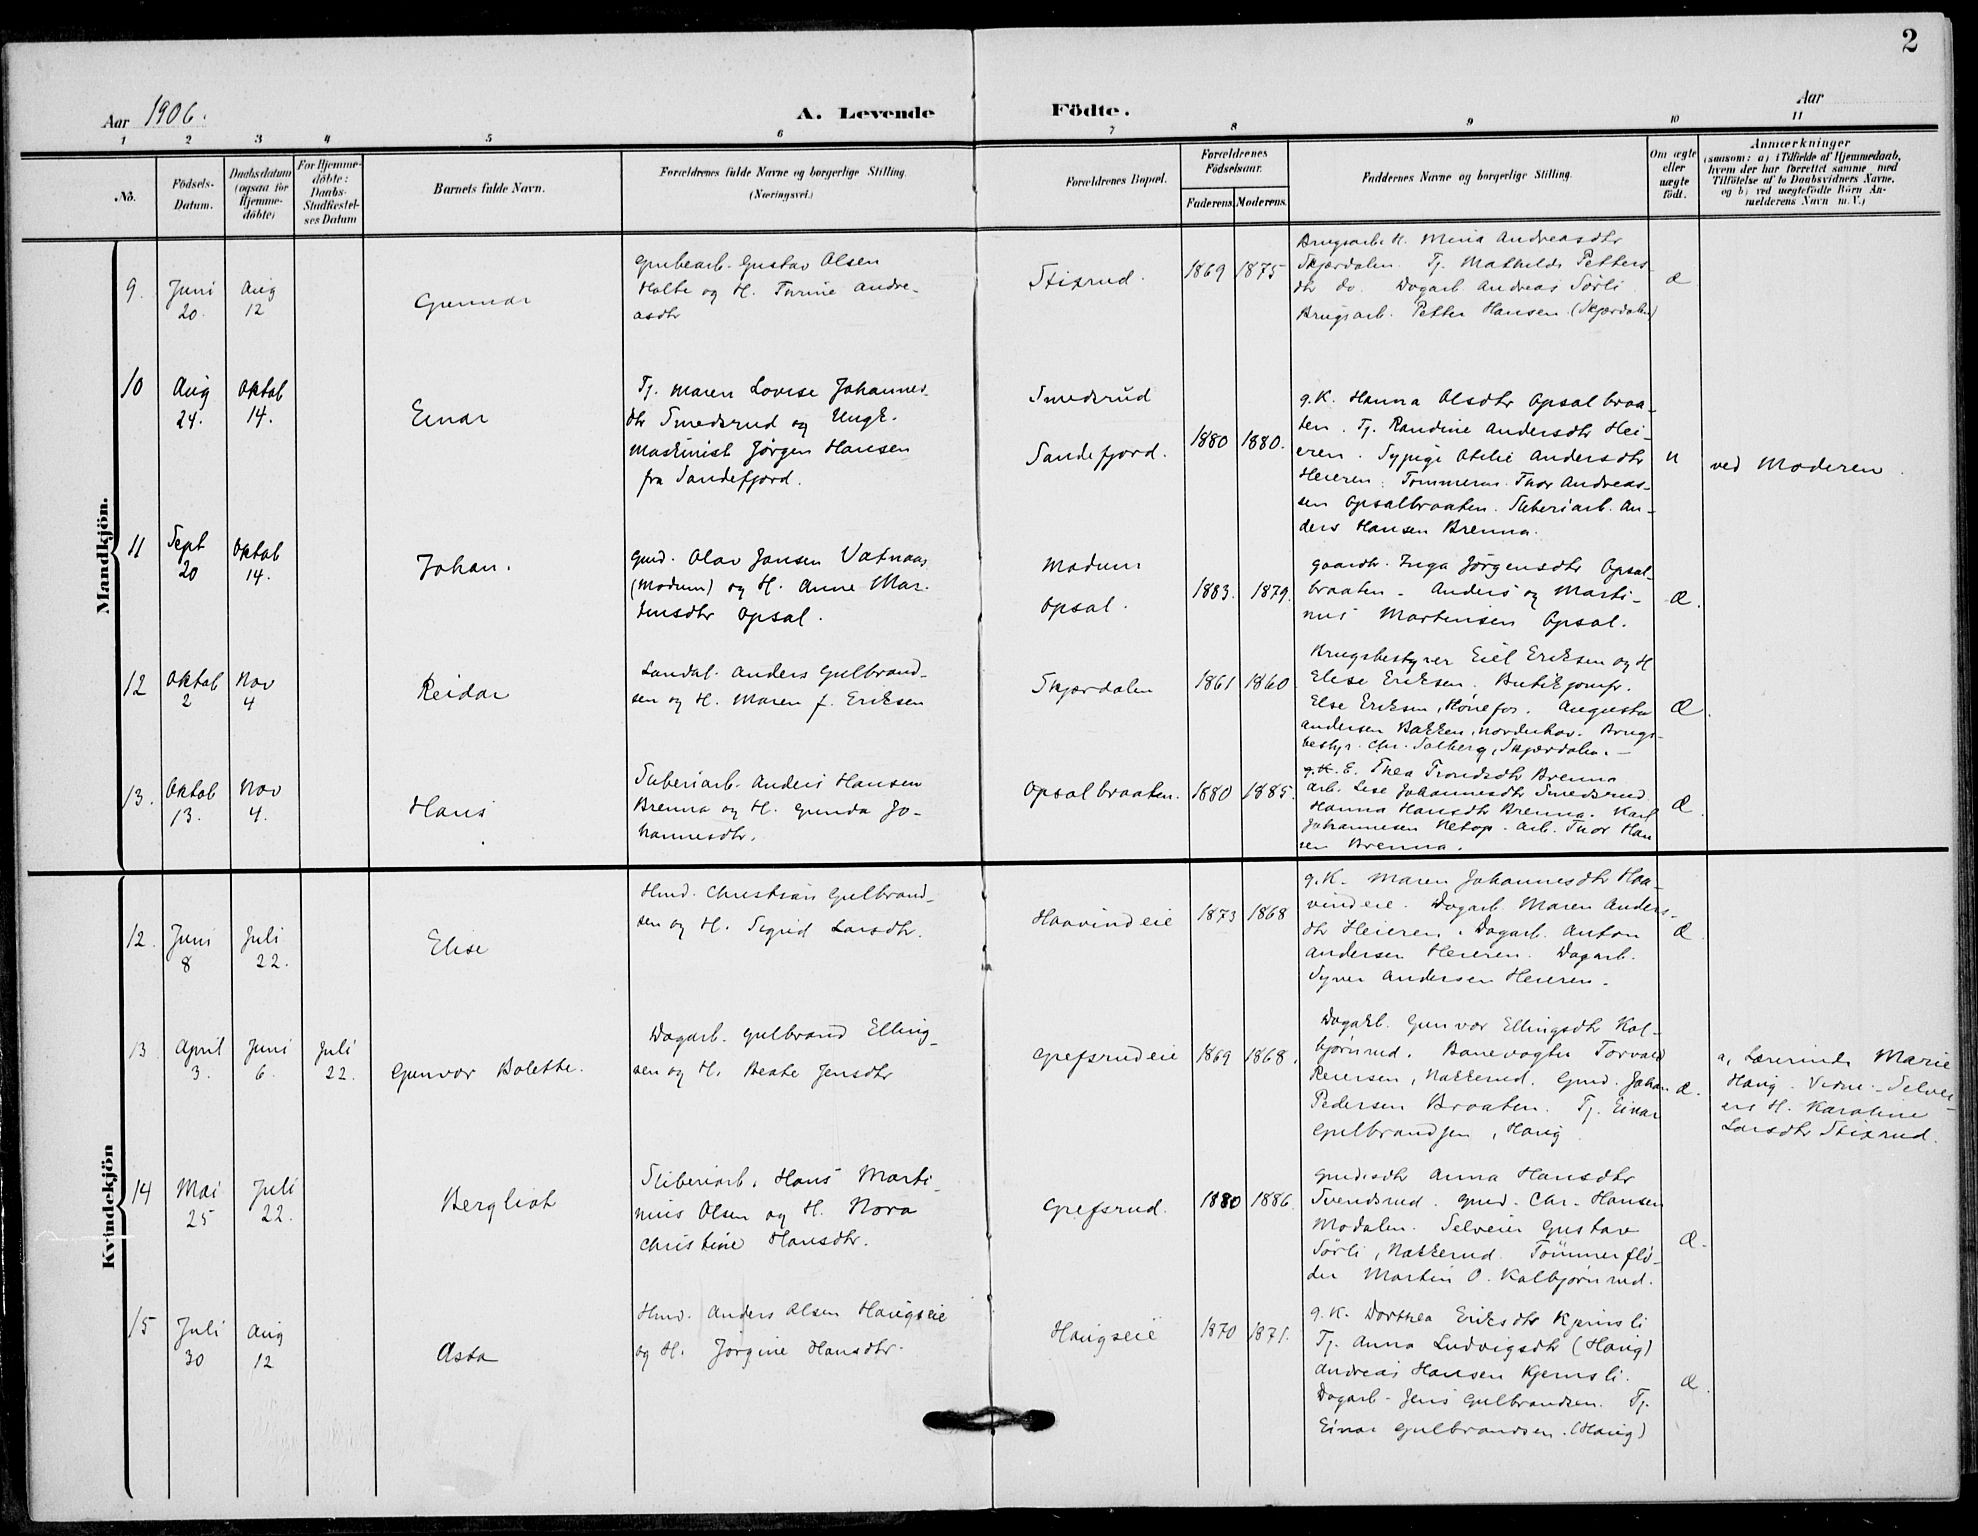 2
Aar 1906.
A. Levende
Födte.
Aar
1 2 3 4 5 6 7 8 9 10 11
No.
Födsels-
Datum.
Daabsdatum
(ogsaa for
Hjemme-
döbte)
For Hjemme-
döbte:
Daabs-
Stadfestel-
ses Datum
Barnets fulde Navn.
Forældrenes fulde Navne og borgerlige Stilling.
(Næringsvei.)
Forældrenes Bopæl.
Forældrenes
Födselsaar.
Faderens. Moderens.
Faddernes Navne og borgerlige Stilling.
Om ægte
eller
uægte
födt.
Anmærkninger
(saasom: a) i Tilfælde af Hjemmedaab,
hvem der har forrettet samme med
Tilföielse af to Daabsvidners Navne,
og b) ved uægtefödte Börn An-
melderens Navn m. V.)
Mandkjön.
9. Juni
20.
Aug
12
Gunnar
Grubearb. Gustav Olsen
Holte og H. Turine Andre-
asdtr
Stixrud.
1869 1875
Brugsarb. H. Mina Andreasdtr
Skjærdalen. Tj. Mathilde Petters-
dtr do. Dagarb. Andreas Sørli
Brugsarb. Petter Hansen (Skjærdalen)
Æ
10 Aug
24.
Oktob
14.
Einar
Tj. Maren Lovise Johannes-
dtr Smedsrud og Ungk.
Maskinist Jørgen Hansen
fra Sandefjord.
Smedsrud
Sandefjord.
1880 1880.
g.K. Hanna Olsdtr Opsalbraa-
ten. Tj. Randine Andersdtr Hei-
eren. Sypige Otelie Andersdtr
Heieren. Tømmerm. Thor Andreas-
sen Opsalbraaten. Sliberiarb. An-
ders Hansen Brenna.
u
ved Moderen.
11 Sept
20
Oktob
14.
Johan.
Gmd. Olav Jansen Vatnaas
(Modum) og H. Anne Mar-
tinsdtr Opsal.
Modum
Opsal.
1883. 1879.
Gaardr. Inga Jørgensdtr Opsal-
braaten - Anders og Marti-
nus Martinsen Opsal.
Æ.
12 Oktob
2
Nov
4
Reidar
Landh. Anders Gulbrand-
sen og H. Maren f. Eriksen
Skjærdalen
1861 1860
Brugsbestyrer Eiel Eriksen og H
Elise Eriksen. Butikjomfr.
Else Eriksen, Hønefos. Augusta
Andersen Bakken, Norderhov. Brugs-
bestyr. Chr. Solberg, Skjærdalen.
Æ.
13. Oktob
13.
Nov
4.
Hans
Sliberiarb. Anders Hansen
Brenna og H. Gunda Jo-
hannesdtr.
Opsalbraaten.
1880 1885.
g.K. E. Thea Trondsdtr Brenna
Arb. Lise Johannesdtr Smedsrud
Hanna Hansdtr Brenna. Karl
Johannesen Netop. Arb. Thor Han
sen Brenna.
Æ.
Kvindekjön
12. Juni
8
Juli
22.
Elise
Hmd. Christian Gulbrand-
sen og H. Sigrid Larsdtr.
Haavindeie
1873 1868
g.K. Maren Johannesdtr Haa-
vindeie. Dagarb. Maren Anders-
dtr Heieren. Dagarb. Anton
Andersen Heieren. Dagarb.
Syver Andersen Heieren.
Æ.
13 April
3.
Juni
6.
Juli
22.
Gunvor Bolette.
Dagarb. Gulbrand Elling-
sen og H. Beate Jensdtr
Grefsrudeie
1869 1868.
Dagarb. Gunvor Ellingsdtr Kol-
bjørnrud. Banevogter Torvald
Reiersen, Nakkerud. Gmd. Johan
Pedersen Braaten. Tj. Einar
Gulbrandsen, Haug
Æ.
a, Lærerinde Marie
Haug. Vidne - Selvei-
ers H. Karoline
Larsdtr Stixrud.
14 Mai
25
Juli
22.
Bergliot
Sliberiarb. Hans Marti-
nius Olsen og H. Nora
Christine Hansdtr.
Grefsrud.
1880 1886.
Gmdsdtr Anna Hansdtr
Svendsrud. Gmd. Chr. Hansen
Modalen. Selveier Gustav
Sörli, Nakkerud. Tømmerflö-
der Martin O. Kolbjørnrud.
Æ.
15 Juli
30
Aug
12
Asta
Hmd. Anders Olsen Haugseie
og H. Jørgine Hansdtr.
Haugseie
1870 1871.
g.K. Dorthea Eriksdtr Kjemsli
Tj. Anna Ludvigsdtr (Haug)
Andreas Hansen Kjemsli.
Dagarb. Jens Gulbrandsen. Tj.
Einar Gulbrandsen. (Haug)
Æ.